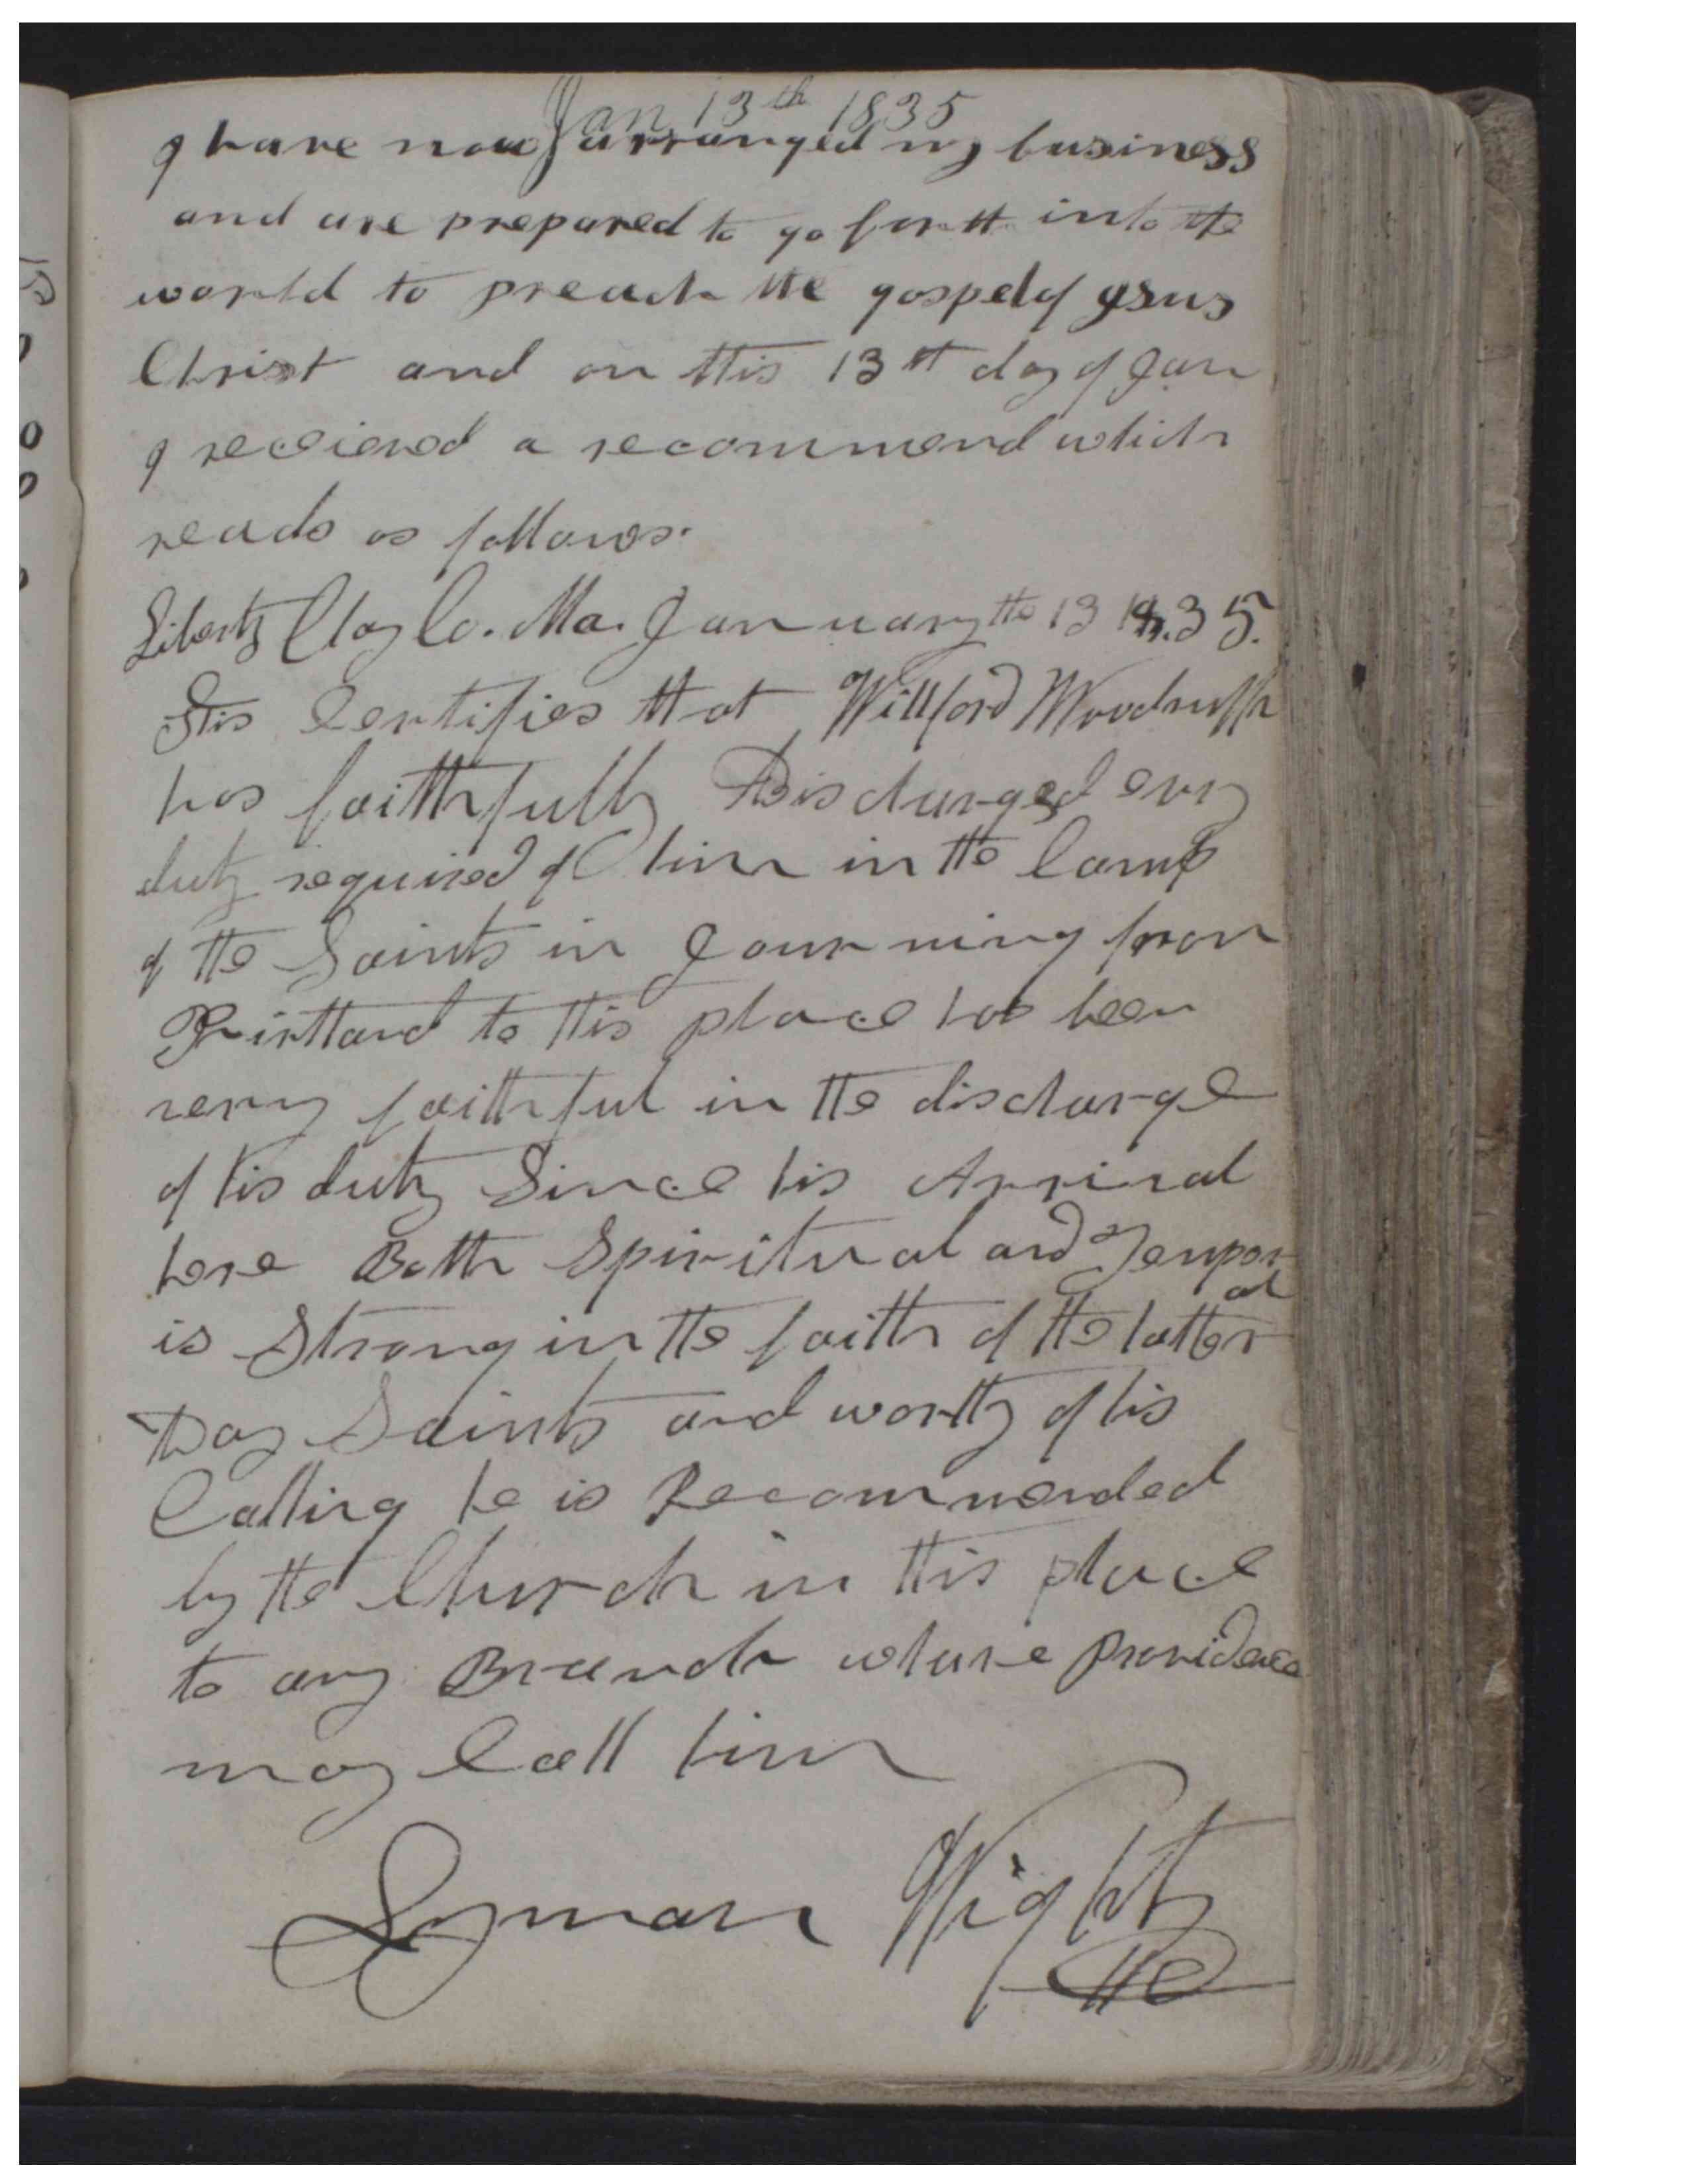 Jan 13th 1835
I have now arranged my business
and are prepared to go forth into the
world to preach the gospel of Jesus
Christ and on this 13th day of Jan
I received a recommend which
reads as follows.
Liberty Clay Co. Mo. January the 13 1835.
This Certifies that Willford Woodruff
has faithfully Discharged evry
duty required of him in the Camp
of the Saints in Journning from
Kirtland to this place has been
very faithful in the discharge
of his duty Since his Arrival
here Both Spiritual and Tempor
al
is Strong in the faith of the latter
Day Saints and worthy of his
Calling he is Recommended
by the Church in this place
to any Branch whare Providence
may Call him
Lyman Wight